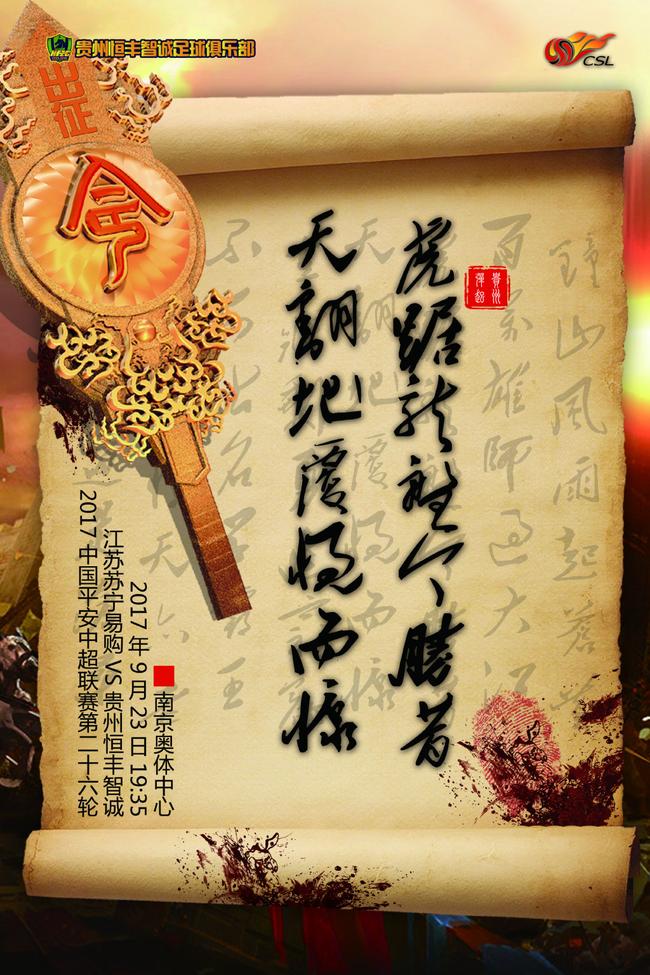 贵州恒丰智诚足球俱乐部
CSL
出征
令
钟山风雨起苍
百万雄师过大江
虎踞龙盘今胜昔
天翻地覆慨而慷
不可沽名学霸王
贵州
南京奥体中心
2017年9月23日19:35
江苏苏宁易购VS贵州恒丰智诚
2017中国平安中超联赛第二十六轮